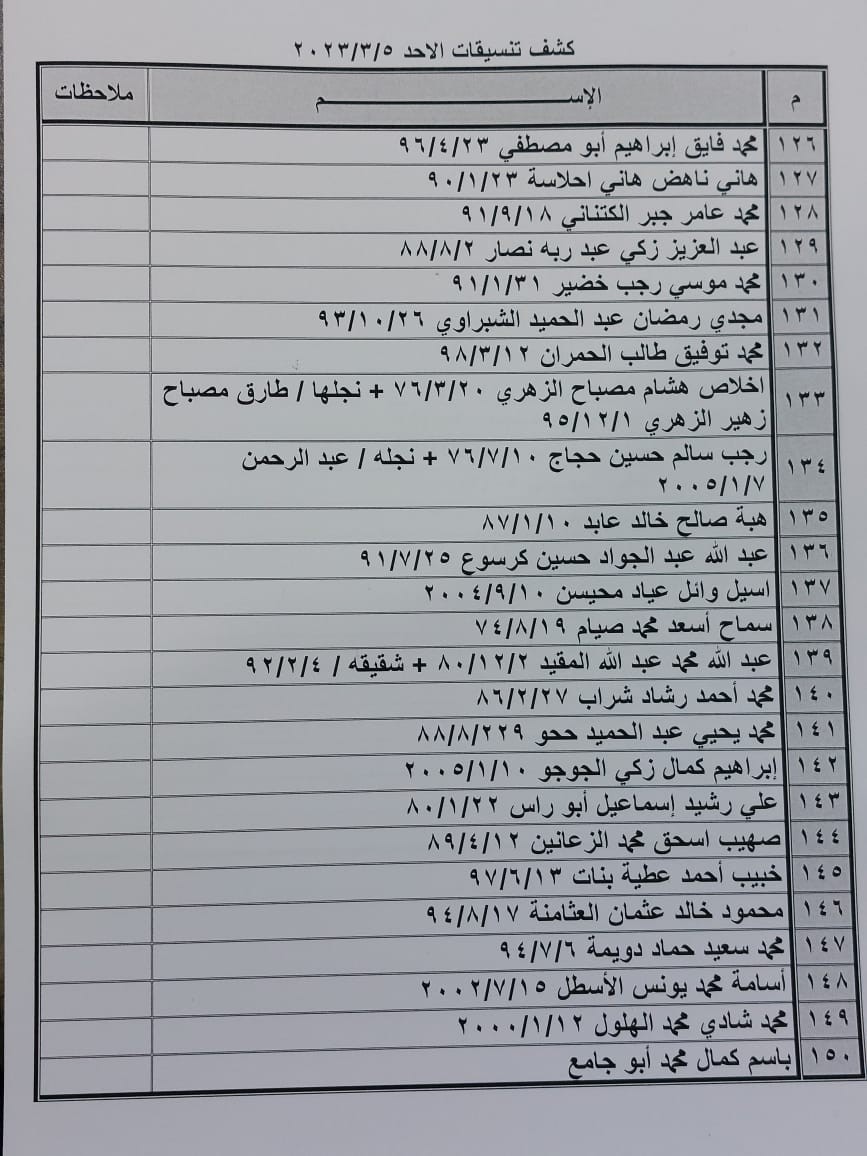 كشف تنسيقات الاحد ٢٠٢٣/٣/٥
م الإســـــــــم ملاحظات
١٢٦ محمد فايق إبراهيم أبو مصطفي ٩٦/٤/٢٣
١٢٧ هاني ناهض هاني احلاسة ٩٠/١/٢٣
١٢٨ محمد عامر جبر الكتناني ٩١/٩/١٨
١٢٩ عبد العزيز زكي عبد ربه نصار ٨٨/٨/٢
١٣٠ محمد موسي رجب خضير ٩١/١/٣١
١٣١ مجدي رمضان عبد الحميد الشبراوي ٩٣/١٠/٢٦
١٣٢ محمد توفيق طالب الحمران ٩٨/٣/١٢
١٣٣ اخلاص هشام مصباح الزهري ٧٦/٣/٢٠ + نجلها / طارق مصباح
زهير الزهري ٩٥/١٢/١
١٣٤ رجب سالم حسين حجاج ٧٦/٧/١٠ + نجله / عبد الرحمن
٢٠٠٥/١/٧
١٣٥ هبة صالح خالد عابد ٨٧/١/١٠
١٣٦ عبد الله عبد الجواد حسين كرسوع ٩١/٧/٢٥
١٣٧ اسيل وائل عياد محيسن ٢٠٠٤/٩/١٠
١٣٨ سماح أسعد محمد صيام ٧٤/٨/١٩
١٣٩ عبد الله محمد عبد الله المقيد ٨٠/١٢/٢ + شقيقه / ٩٢/٢/٤
١٤٠ محمد أحمد رشاد شراب ٨٦/٢/٢٧
١٤١ محمد يحيي عبد الحميد ححو ٨٨/٨/٢٢٩
١٤٢ إبراهيم كمال زكي الجوجو ٢٠٠٥/١/١٠
١٤٣ علي رشيد إسماعيل أبو راس ٨٠/١/٢٢
١٤٤ صهيب اسحق محمد الزعانين ٨٩/٤/١٢
١٤٥ خبيب أحمد عطية بنات ٩٧/٦/١٣
١٤٦ محمود خالد عثمان العثامنة ٩٤/٨/١٧
١٤٧ محمد سعيد حماد دويمة ٩٤/٧/٦
١٤٨ أسامة محمد يونس الأسطل ٢٠٠٢/٧/١٥
١٤٩ محمد شادي محمد الهلول ٢٠٠٠/١/١٢
١٥٠ باسم كمال محمد أبو جامع